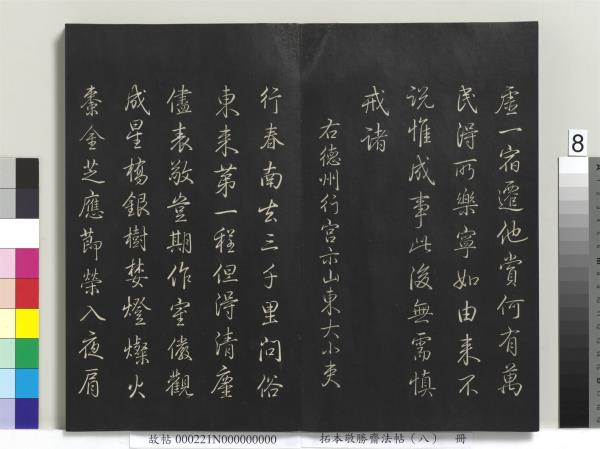 虛一宿遷他賞何有萬
民得所樂寧如由來不
説惟成事此後無需慎
戒諸
右德州行宮示山東大小吏
行春南去三千里問俗
東來第一程但得清塵
儘表敬豈期作室儼觀
成星橋銀樹婪燈燦火
棗金芝應節榮入夜肩
8
故帖 000221N000000000
拓本敬勝齋法帖（八） 冊